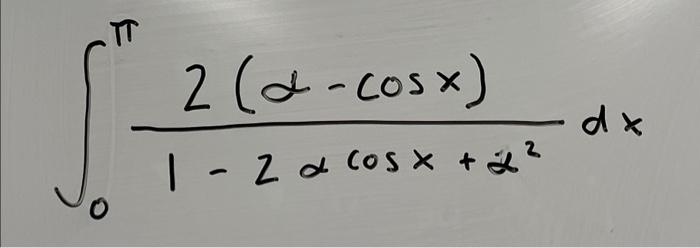 ∫₀^π 2(α - cos x) / (1 - 2α cos x + α²) dx